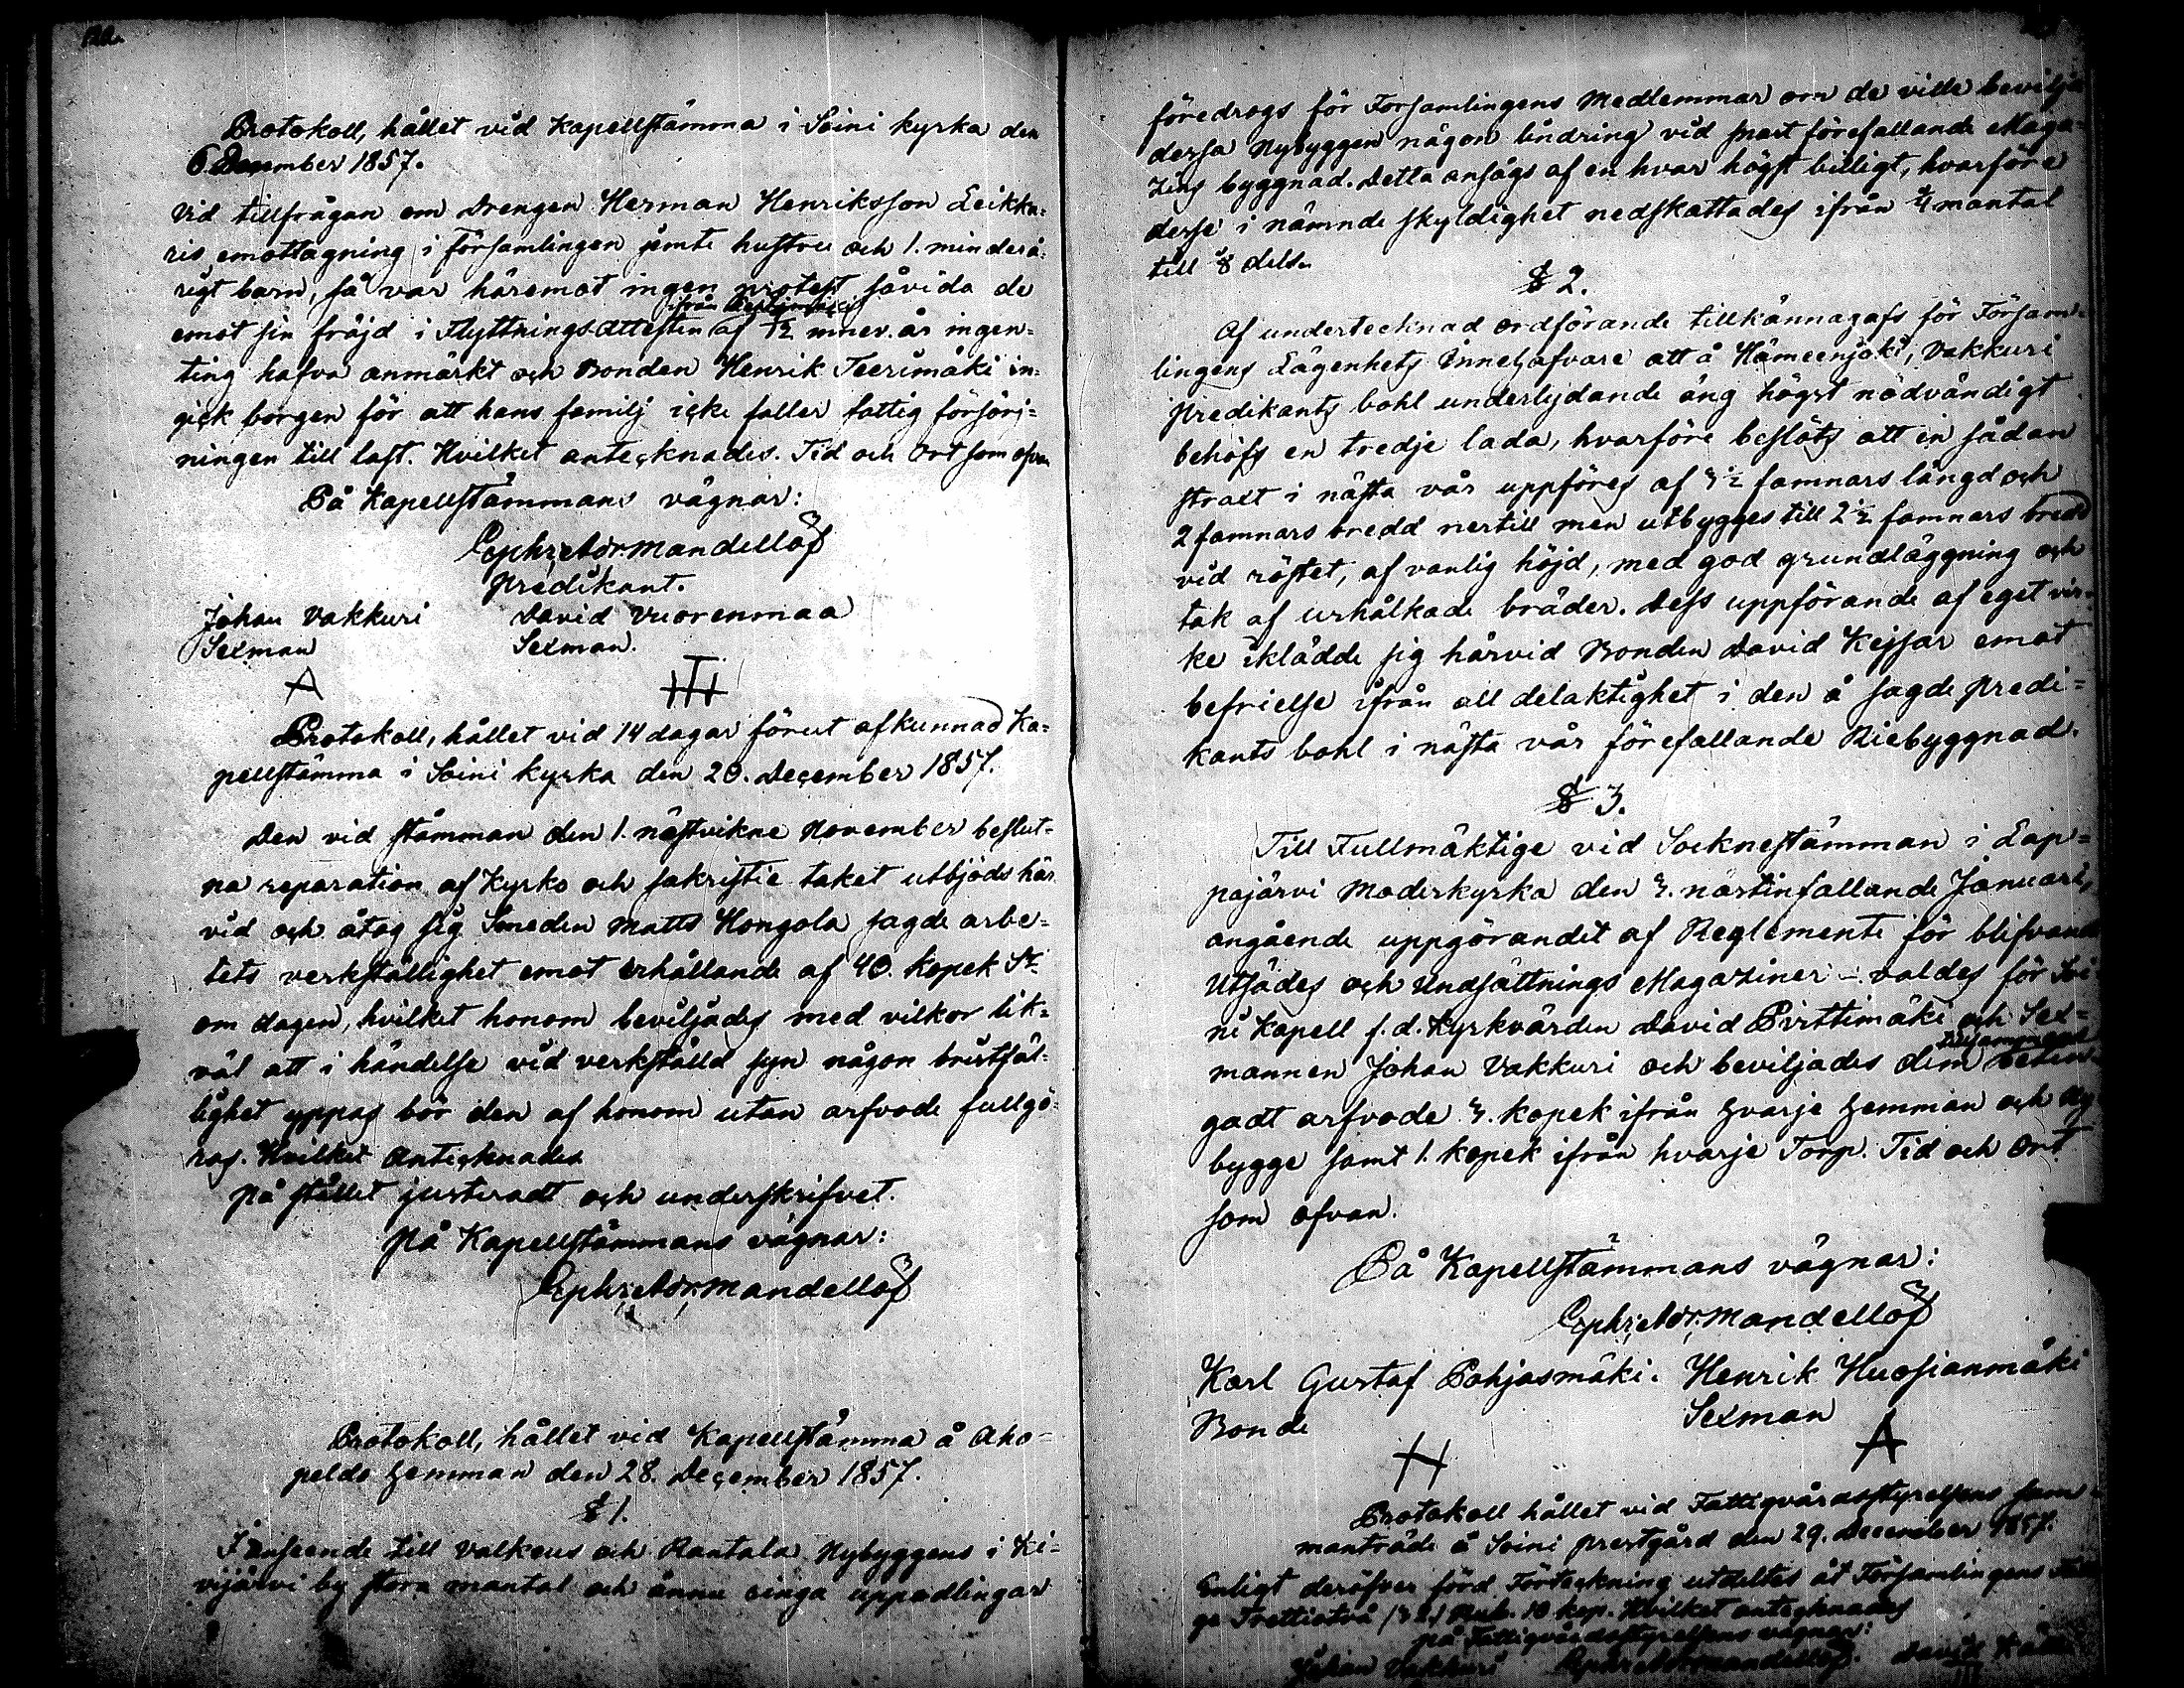 Protokoll, hållet vid Kapellstämma i Soini kyrka den
6 December 1857.
Vid tillfrågan om Drengen Herman Henriksson Leikka=
ris emottagning i Församlingen jämte hustru och 1. minderå=
rigt barn, så var häremot ingen protest såvida de
ifrån
emot sin fräjd i Flyttnings Attesten af 1/12 innev. år ingen=
ting hafva anmärkt och Bonden Henrik Teerimäki in=
gick borgen för att hans familj icke faller fattig försörj=
ningen till last. Hvilket antecknades. Tid och Ort som ofvan
På Kapellstämmans vägnar:
Ephr: Adr: Mandellöf
Predikant.
Johan Vakkuri David Vuorenmaa
Sexman Sexman.
Protokoll, hållet vid 14 dagar förut afkunnad Ka=
pellstämma i Soini kyrka den 20. December 1857.
Den vid stämman den 1. nästvikne November beslut=
na reparation af Kyrko och sakristie taket utbjöds här
vid och åtog sig Smeden Matts Hongola sagde arbe=
tets verkställighet emot erhållande af 40. kopek Sr
om dagen, hvilket honom beviljades med vilkor lik=
väl att i händelse vid verkställd syn någon bristfäl=
lighet yppas bör den af honom utan arfvode fullgö=
ras. Hvilket antecknades
På stället justeradt och underskrifvet.
På Kapellstämmans vägnar:
Ephr: Adr: Mandellöf
Protokoll, hållet vid Kapellstämma å Aho=
peldo hemman den 28. December 1857.
§ 1.
I anseende till Valkeus och Rantala Nybyggens i Ki=
vijärvi by stora mantal och ännu ringa uppodlingar
föredrogs för Församlingens Medlemmar om de ville bevilja
dessa Nybyggen någon lindring vid snart förefallande Maga=
zins byggnad. Detta ansågs af en hvar högst billigt, hvarföre
desse i nämnde skyldighet nedskattades ifrån 1/4 mantal
till 1/8 dels.
§ 2.
Af undertecknad ordförande tillkännagafs för Försam=
lingens Lägenhets Innehafvare att å Hämeenjoki, Vakkuri
Predikants bohl underlydande äng högst nödvändigt
behöfs en tredje lada, hvarföre beslöts att en sådan
straxt i nästa vår uppföres af 3 1/2 famnars längd och
2 famnars bredd nertill men utbygges till 2 1/2 famnars bredd
vid röstet, af vanlig höjd, med god grundläggning och
tak af urhålkade bräder. Dess uppförande af eget vir=
ke iklädde sig härvid Bonden David Kejsar emot
befrielse ifrån all delaktighet i den å sagde Predi=
kants bohl i nästa vår förefallande Riebyggnad.
§ 3.
Till Fullmäktige vid Socknestämman i Lap=
pajärvi Moderkyrka den 3. nästinfallande Januari,
angående uppgörandet af Reglemente för blifvande
Utsädes och Undsättnings Magaziner - valdes för Soi
ni Kapell f. d. Kyrkvärden David Pirttimäki och Sex=
tillsammans
mannen Johan Vakkuri och beviljades dem
gadt arfvode 3. kopek ifrån hvarje hemman och Ny
bygge samt 1. kopek ifrån hvarje Torp. Tid och Ort
som ofvan.
På Kapellstämmans vägnar:
Ephr: Adr: Mandellöf
Karl Gustaf Pohjasmäki. Henrik Huosianmäki
Bonde Sexman
Protokoll hållet vid Fattigvårdsstyrelsens sam=
manträde å Soini prestgård den 29. December 1857.
Enligt deröfver förd Förteckning utdeltes åt Församlingens Fatti
ge Trettiotvå /32/ Rub. 10 kop. Hvilket antecknades
på Fattigvårdsstyrelsens vägnar:
Johan Vakkuri Ephr: Adr: Mandellöf. David